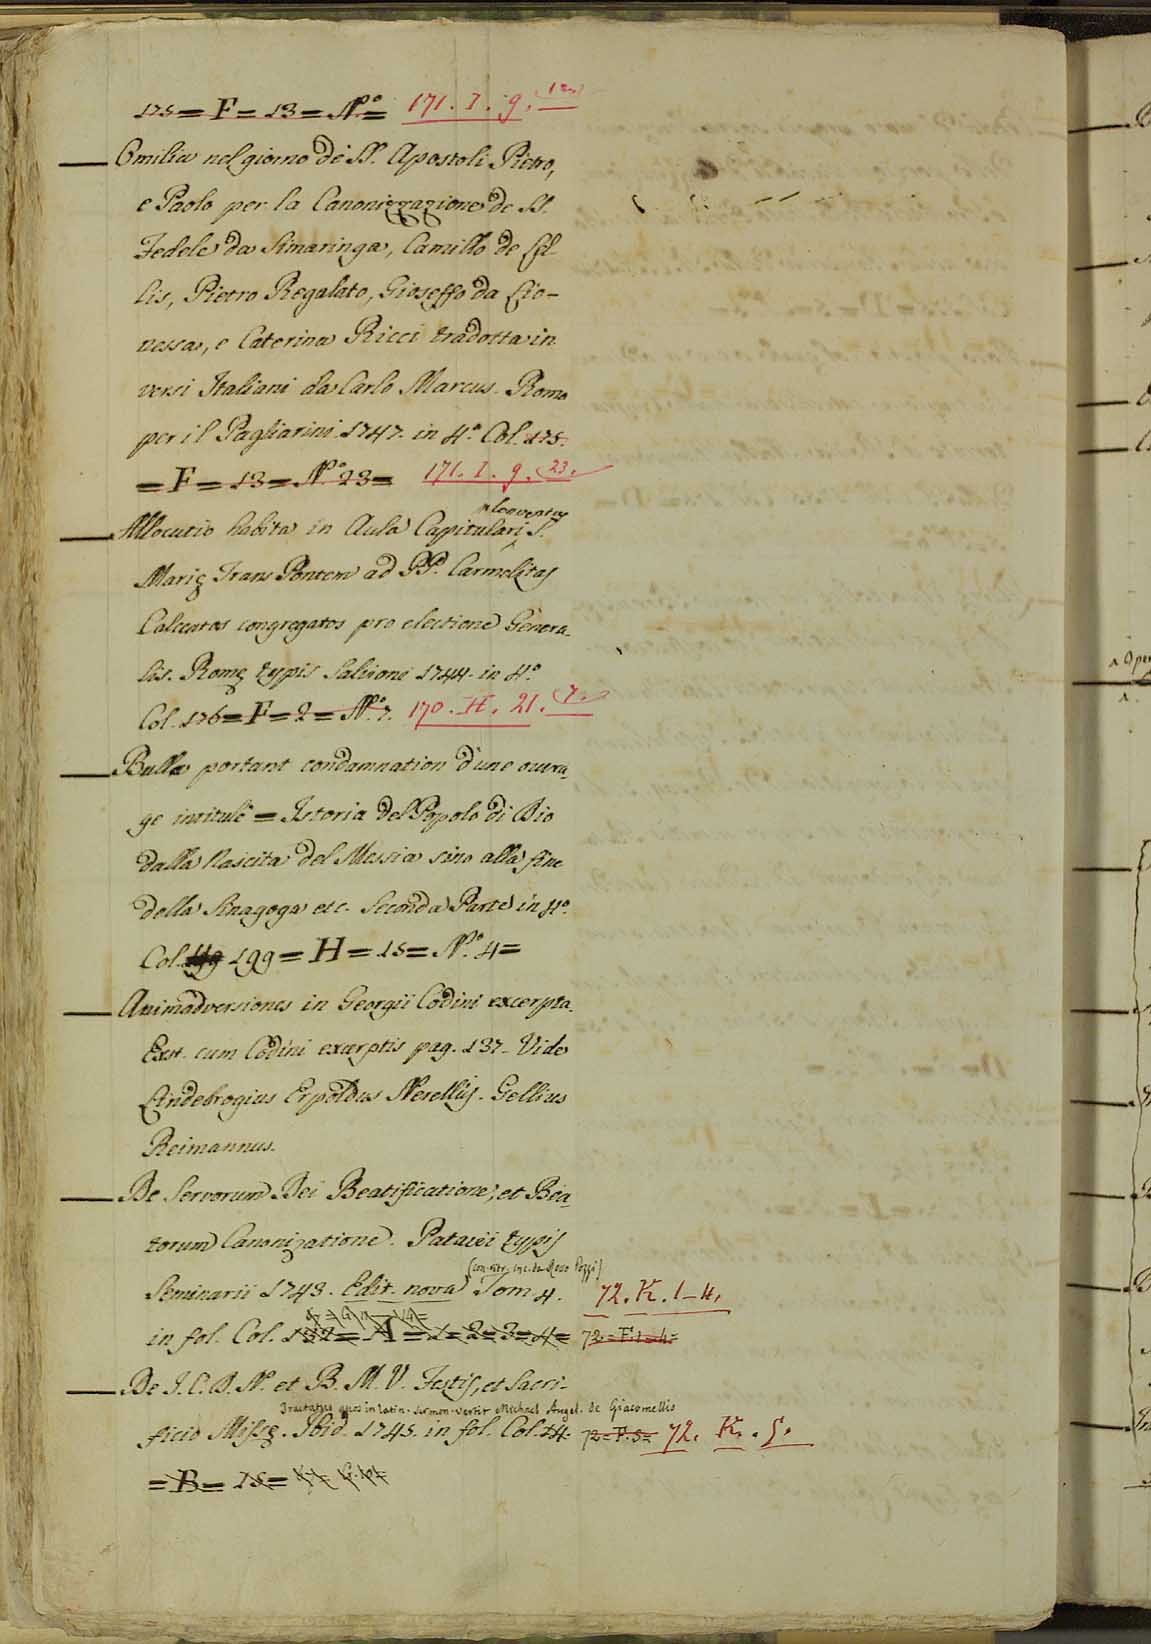 175 = F = 13 = N.º = 171. I. 9.
Omilia nel giorno de SS. Apostoli Pietro,
e Paolo per la Canonizzazione de SS.
Fedele da Simaringa, Camillo de Lel-
lis, Pietro Regalato, Gioseffo da Lio-
nessa, e Caterina Ricci tradotta in
versi Italiani da Carlo Marcus. Roma
per il Pagliarini 1747. in 4.º Col. 175.
= F = 13 = N.º 23 = 171. I. 9. (23.)
Allocutio habita in Aula Capitulari Conventus S.
Marię Trans Pontem ad PP. Carmelitas
Calceatos congregatos pro electione Genera-
lis. Romę typis Salvioni 1744. in 4.º
Col. 176 = F = 2 = N.º 7. 170. H. 21. (7.)
Bulla portant condamnation d'une ouvra-
ge intitulé = Istoria del Popolo di Dio
dalla Nascita del Messia sino alla fine
della Sinagoga etc. Seconda Parte in 4.º
Col. 199 = H = 15 = N.º 4 =
Animadversiones in Georgii Codini excerpta.
Exst. cum Codini excerptis pag. 137. Vide
Lindebrogius Erpoldus Nesellius. Gellius
Reimannus.
De Servorum Dei Beatificatione, et Bea-
torum Canonizatione. Patavii typis
(con ritr. inc. da Rocco Pozzi)
Seminarii 1743. Edit. nova Tom. 4. 72. K. 1-4.
in fol. Col. 132 = A = 1 = 2 = 3 = 4 = 72 = F. 1 = 4 =
De J. C. D. N. et B. M. V. Festis, et Sacri-
Tractatus quos in latin. sermon. vertit Michael Angel. de Giacomellis
ficio Missę. Ibid. 1745. in fol. Col. 14. 72 = F. 5 = 72. K. 5.
= B = 15 =